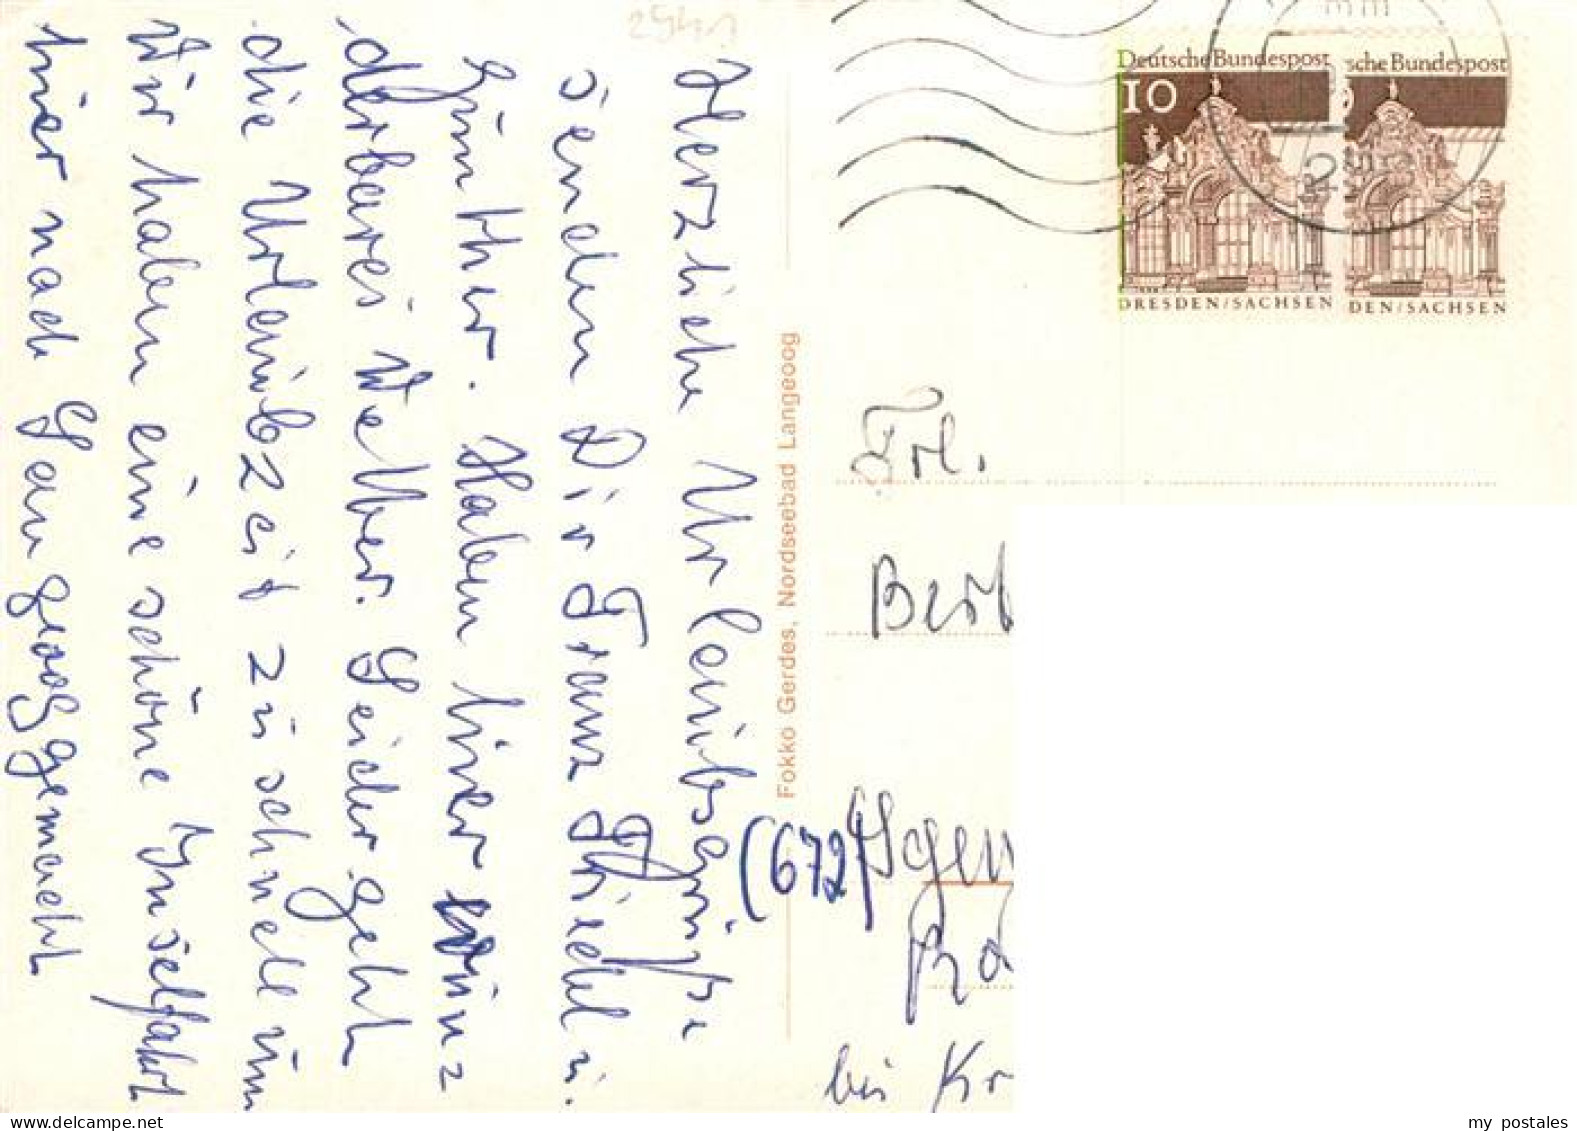 Herzliche Urlaubsgrüße
senden Dir Franz Friedel u.
Günther. Haben hier wun
derbares Wetter. Leider geht
die Urlaubzeit zu schnell um
Wir haben eine schöne Inselfahrt
hier nach Langeoog gemacht
Fokko Gerdes, Nordseebad Langeoog
Deutsche Bundespost
10
DRESDEN/SACHSEN
sche Bundespost
DEN/SACHSEN
Frl.
(672)
bei Kr
my postales